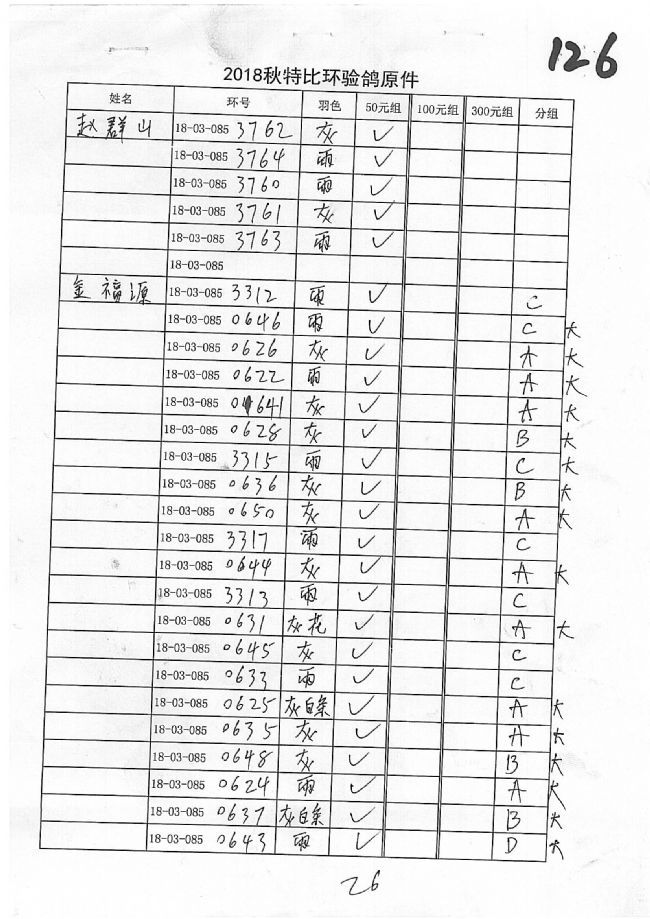 126
2018秋特比环验鸽原件
姓名 环号 羽色 50元组 100元组 300元组 分组
赵群山 18-03-085 3762 灰 ✓
18-03-085 3764 雨 ✓
18-03-085 3760 雨 ✓
18-03-085 3761 灰 ✓
18-03-085 3763 雨 ✓
18-03-085
金福源 18-03-085 3312 雨 ✓ C
18-03-085 0646 雨 ✓ C 大
18-03-085 0626 灰 ✓ A 大
18-03-085 0622 雨 ✓ A 大
18-03-085 0641 灰 ✓ A 大
18-03-085 0628 灰 ✓ B 大
18-03-085 3315 雨 ✓ C 大
18-03-085 0636 灰 ✓ B 大
18-03-085 0650 灰 ✓ A 大
18-03-085 3317 雨 ✓ C
18-03-085 0644 灰 ✓ A 大
18-03-085 3313 雨 ✓ C
18-03-085 0631 灰花 ✓ A 大
18-03-085 0645 灰 ✓ C
18-03-085 0633 雨 ✓ C
18-03-085 0625 灰白条 ✓ A 大
18-03-085 0635 灰 ✓ A 大
18-03-085 0648 灰 ✓ B 大
18-03-085 0624 雨 ✓ A 大
18-03-085 0637 灰白条 ✓ B 大
18-03-085 0643 雨 ✓ D 大
26